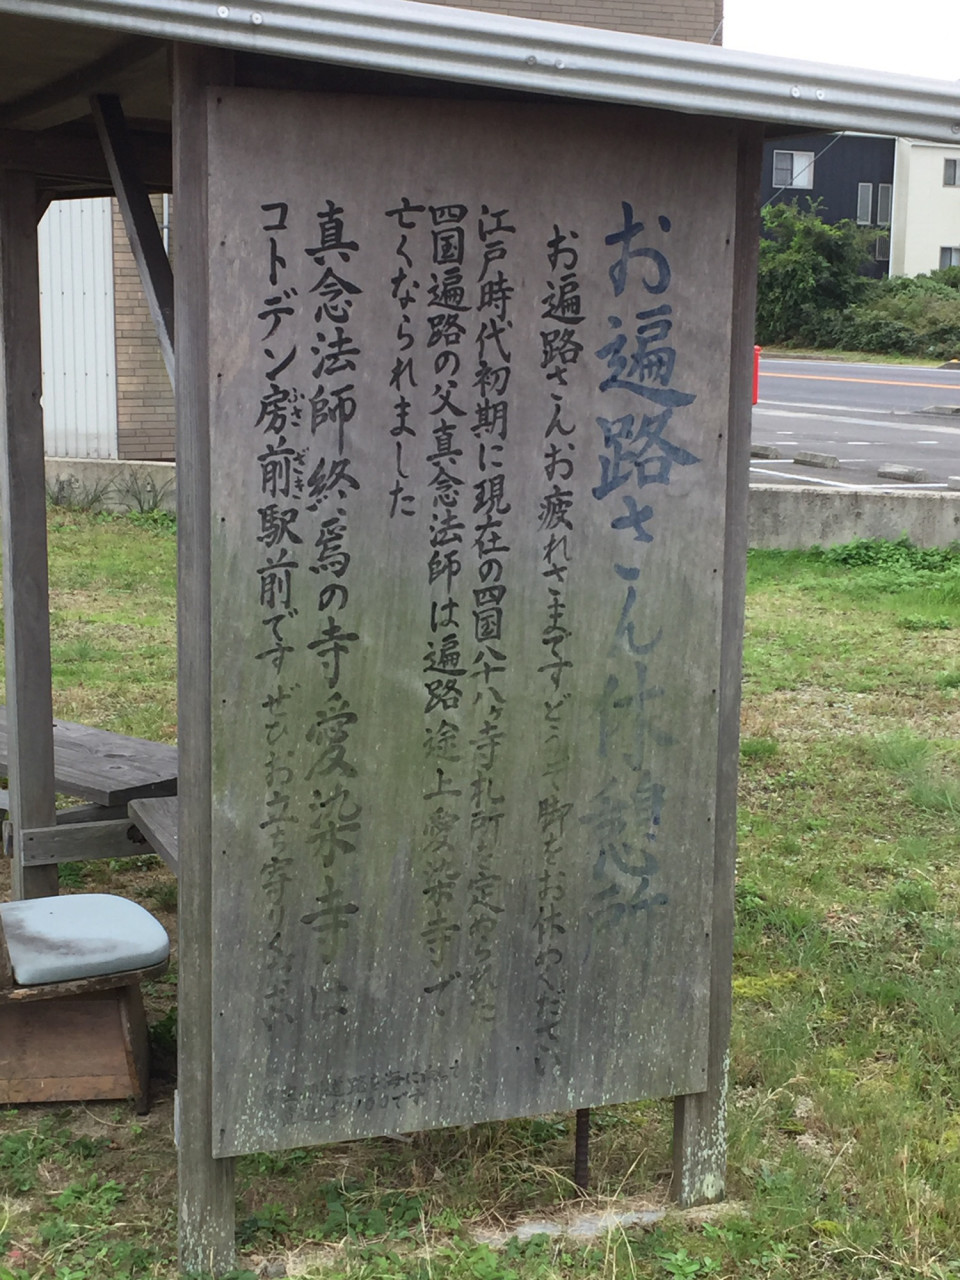 お遍路さん休憩所
お遍路さんお疲れさまですどうぞ脚をお休めください
江戸時代初期に現在の四国八十八ヶ寺札所を定められた
四国遍路の父真念法師は遍路途上愛染寺で
亡くなられました
真念法師終焉の寺愛染寺は
コトデン房前駅前ですぜひお立ち寄りください
ふさ ざき
道路を海に